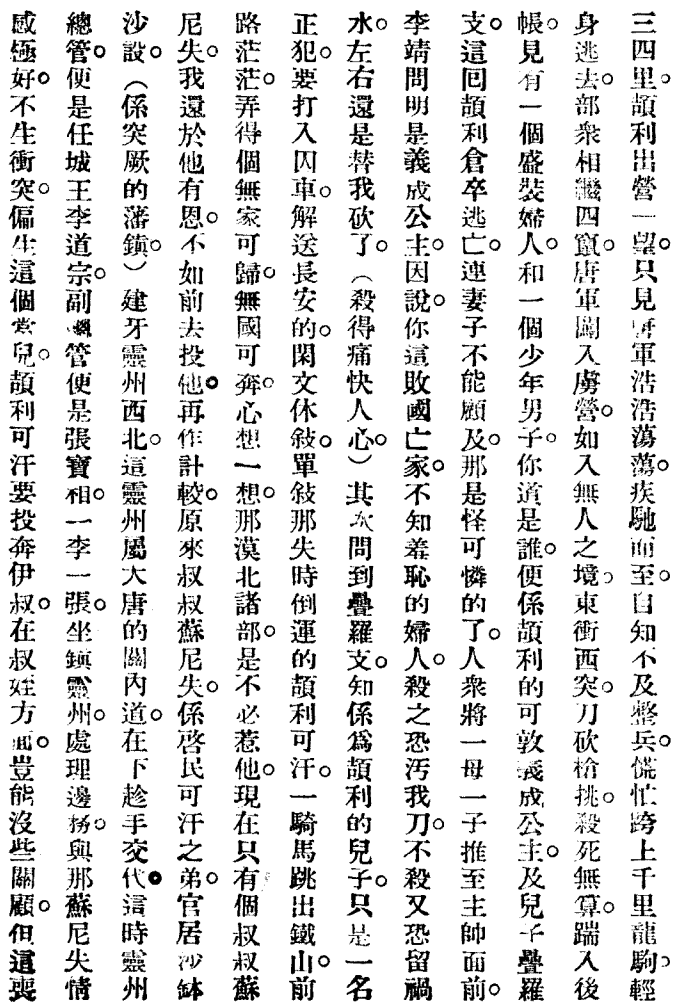 三四里。頡利出營一望。只見唐軍浩浩蕩蕩。疾馳而至。自知不及整兵。慌忙跨上千里龍駒。輕
身逃去。部衆相繼四竄。唐軍闖入虜營。如入無人之境。東衝西突。刀砍槍挑。殺死無算。踹入後
帳。見有一個盛裝婦人。和一個少年男子。你道是誰。便係頡利的可敦義成公主。及兒子疊羅
支。這回頡利倉卒逃亡。連妻子不能顧及。那是怪可憐的了。人衆將一母一子推至主帥面前。
李靖問明是義成公主。因說。你這敗國亡家。不知羞恥的婦人。殺之恐汚我刀。不殺又恐留禍
水。左右還是替我砍了。（殺得痛快人心）其次問到疊羅支。知係爲頡利的兒子。只是一名
正犯。要打入囚車。解送長安的。閑文休敍。單敍那失時倒運的頡利可汗。一騎馬跳出鐵山。前
路茫茫。弄得個無家可歸。無國可奔。心想一想。那漠北諸部。是不必惹他。現在只有個叔叔蘇
尼失。我還於他有恩。不如前去投他。再作計較。原來叔叔蘇尼失。係啓民可汗之弟。官居沙鉢
沙設。（係突厥的藩鎮）建牙靈州西北。這靈州屬大唐的關內道。在下趁手交代。這時靈州
總管。便是任城王李道宗。副總管便是張寶相。一李一張。坐鎮靈州。處理邊務。與那蘇尼失情
感極好。不生衝突。偏生這個當兒。頡利可汗要投奔伊叔。在叔姪方面。豈能沒些關顧。但這喪